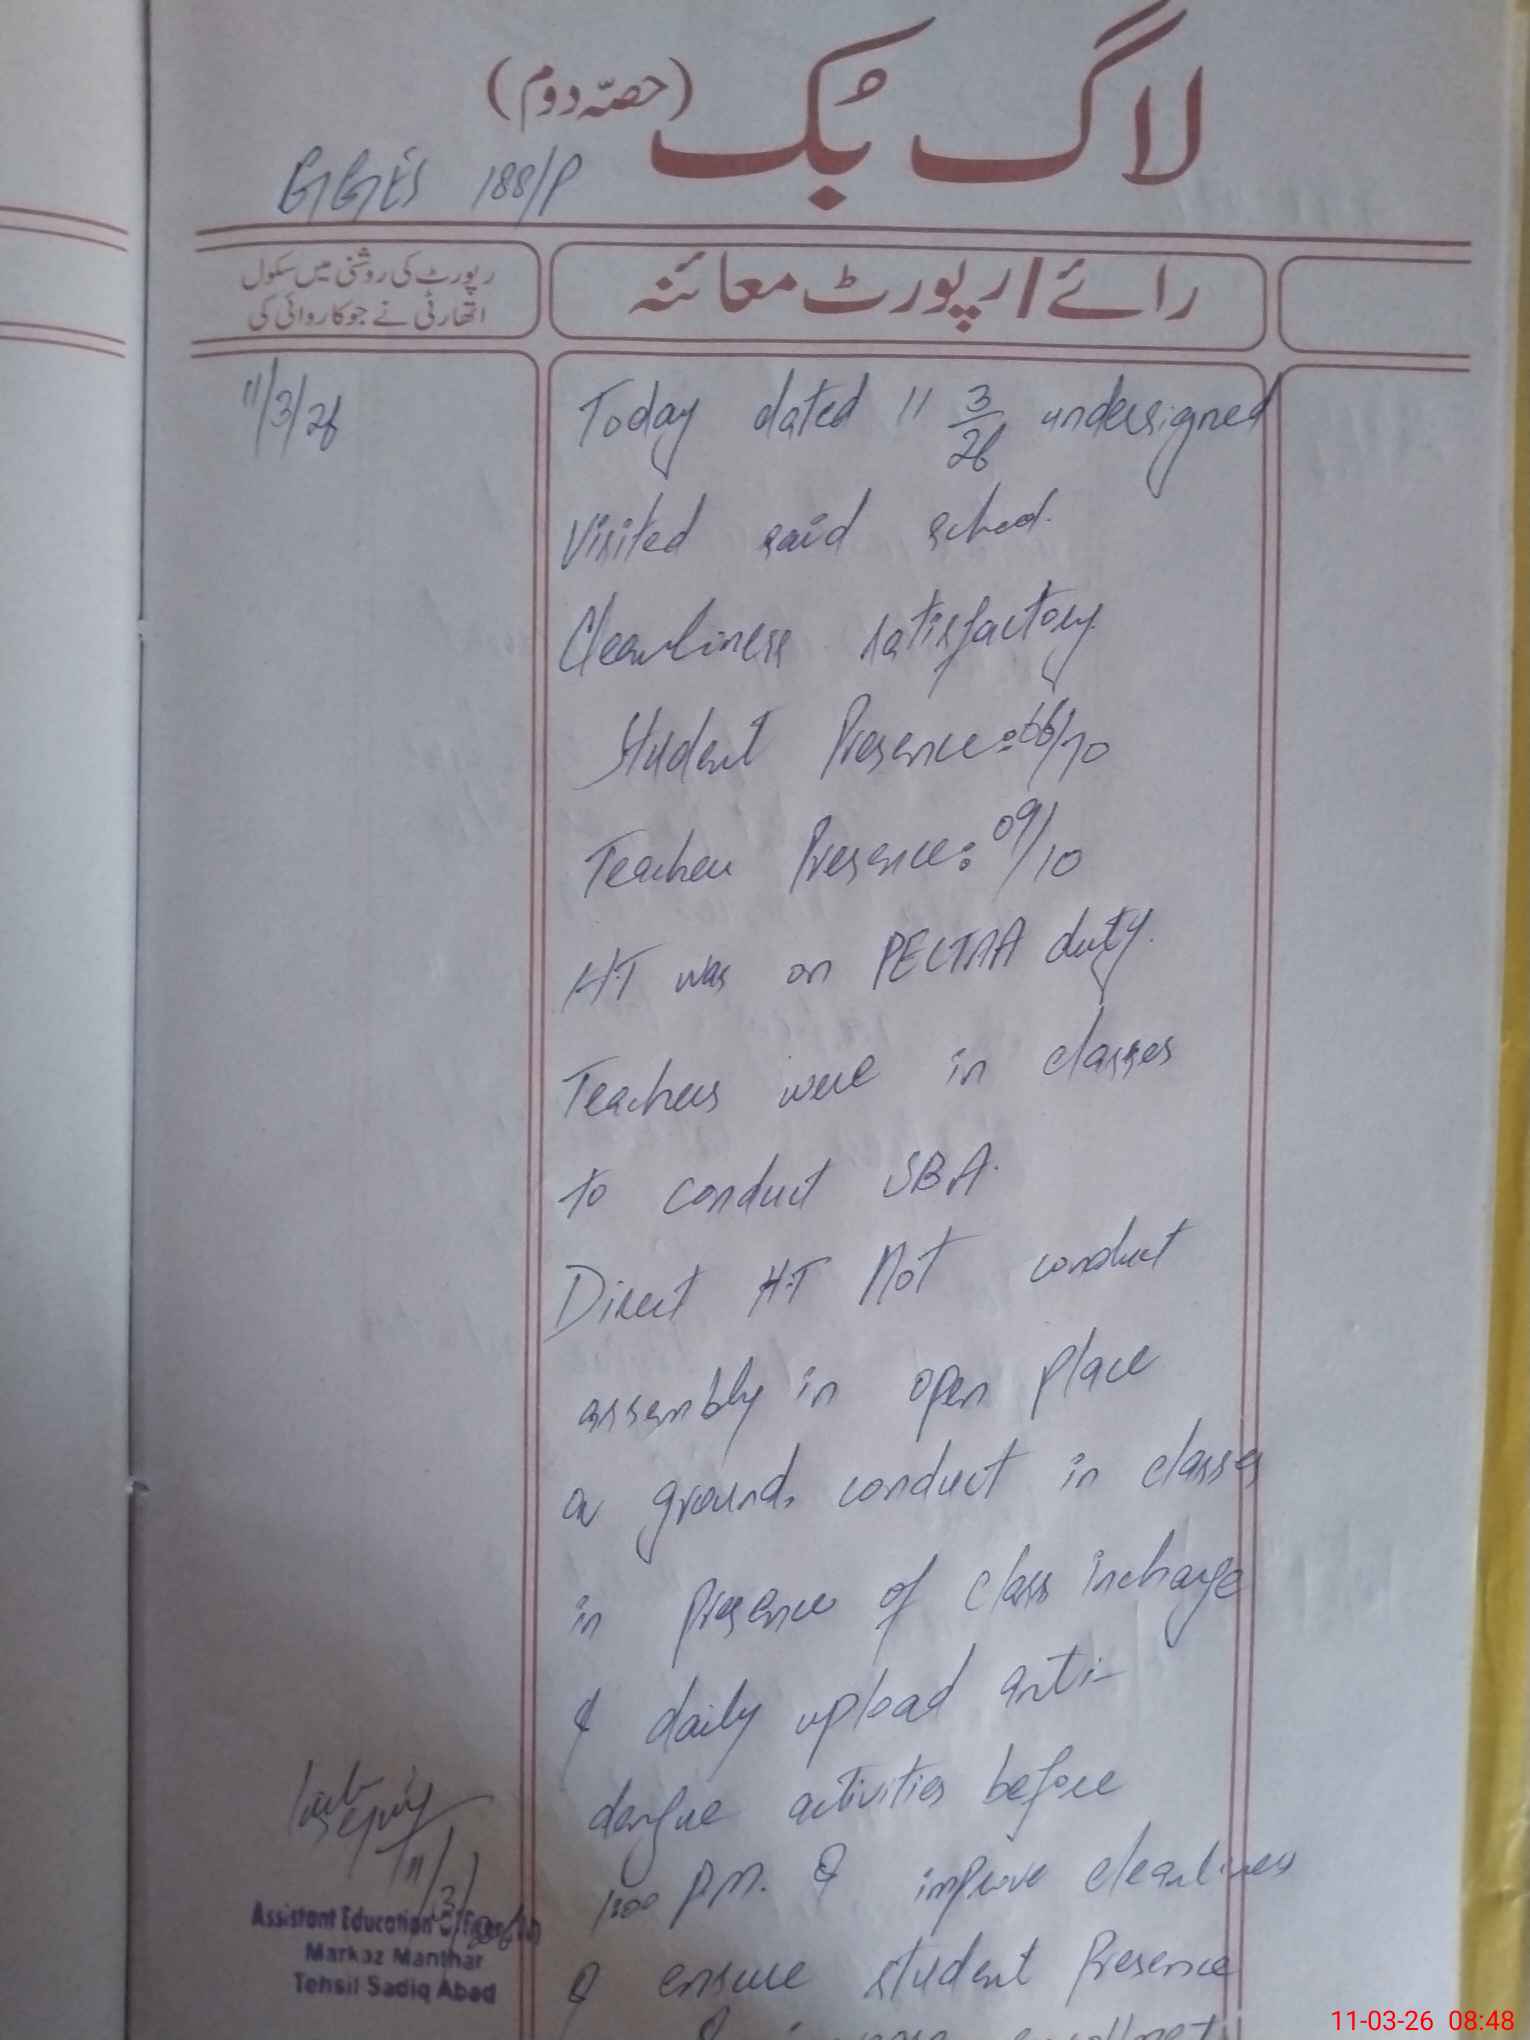 لاگ بُک (حصّہ دوم)
GGES 188/P
رائے/رپورٹ معائنہ
رپورٹ کی روشنی میں سکول
اتھارٹی نے جو کاروائی کی
11/3/26
Today dated 11 3/26 undersigned
Visited said school.
Cleanliness satisfactory.
Student Presence: 66/70
Teacher Presence: 09/10
H.T was on PECTAA duty.
Teachers were in classes
to conduct SBA.
Direct H.T Not conduct
assembly in open place
or ground, conduct in classes
in presence of class incharge
& daily upload anti-
dengue activities before
1:00 P.M. & improve cleanliness
& ensure student Presence
enrollment
11/3/26
Assistant Education Officer
Markaz Manthar
Tehsil Sadiq Abad
11-03-26 08:48